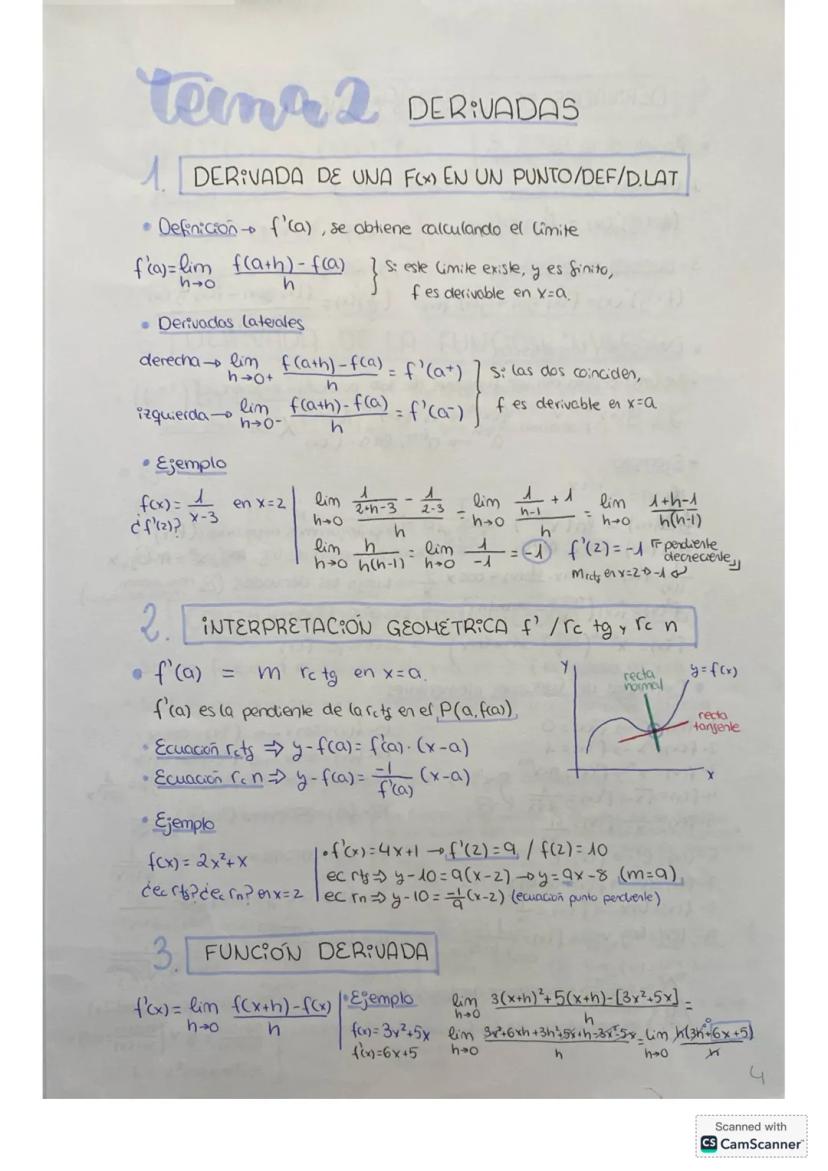 Tema 2 DERIVADAS
1. DERIVADA DE UNA F(x) EN UN PUNTO/DEF/D.LAT
• Definición → f'(a), se obtiene calculando el límite
f'(a) = lim h→0 (f(a+h) - f(a))/h } Si este límite existe, y es finito,
f es derivable en x=a.
• Derivadas laterales
derecha → lim h→0+ (f(a+h) - f(a))/h = f'(a+) } Si las dos coinciden,
izquierda → lim h→0- (f(a+h) - f(a))/h = f'(a-) } f es derivable en x=a
• Ejemplo
f(x) = 1/(x-3) en x=2 | lim h→0 (1/(2+h-3) - 1/(2-3))/h = lim h→0 (1/(h-1) + 1)/h = lim h→0 (1+h-1)/(h(h-1))
¿f'(2)? | lim h→0 h/(h(h-1)) = lim h→0 1/-1 = -1 f'(2) = -1 "pendiente decreciente"
m rctg en x=2 → -1
2. INTERPRETACIÓN GEOMÉTRICA f' / rc tg y rc n
• f'(a) = m rc tg en x=a.
f'(a) es la pendiente de la rctg en el P(a, f(a))
• Ecuación rctg ⇒ y - f(a) = f'(a) · (x-a)
• Ecuación rc n ⇒ y - f(a) = -1/f'(a) (x-a)
Y
recta normal
y = f(x)
recta tangente
X
• Ejemplo
f(x) = 2x²+x | • f'(x) = 4x+1 → f'(2) = 9 / f(2) = 10
¿ec rtg? ¿ec rn? en x=2 | ec rtg ⇒ y-10 = 9(x-2) → y = 9x-8 (m=9)
ec rn ⇒ y-10 = -1/9 (x-2) (ecuación punto pendiente)
3. FUNCIÓN DERIVADA
f'(x) = lim h→0 (f(x+h) - f(x))/h | • Ejemplo lim h→0 (3(x+h)² + 5(x+h) - [3x²+5x])/h =
f(x) = 3x²+5x lim h→0 (3x²+6xh+3h²+5x+h-3x²-5x)/h = lim h→0 h(3h+6x+5)/h
f'(x) = 6x+5
4
Scanned with
CS CamScanner